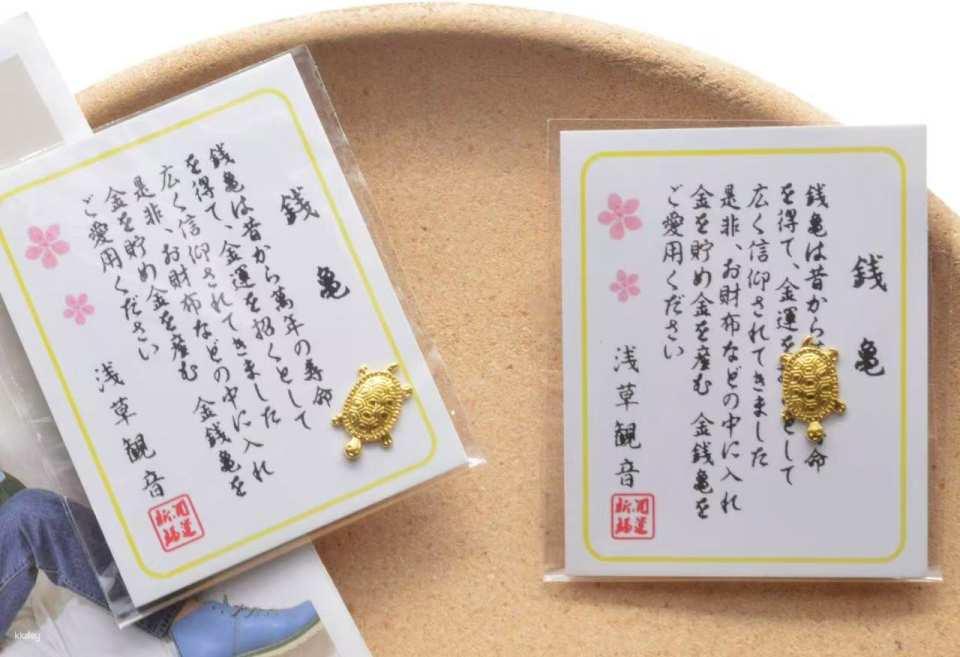 銭亀
銭亀は昔から萬年の寿命
を得て、金運を招くとして
広く信仰されてきました
是非、お財布などの中に入れ
金を貯め金を産む 金銭亀を
ご愛用ください
浅草観音
開運
銭亀
銭亀は昔から 命
を得て、金運を として
広く信仰されてきました
是非、お財布などの中に入れ
金を貯め金を産む 金銭亀を
ご愛用ください
浅草観音
開運
kkday